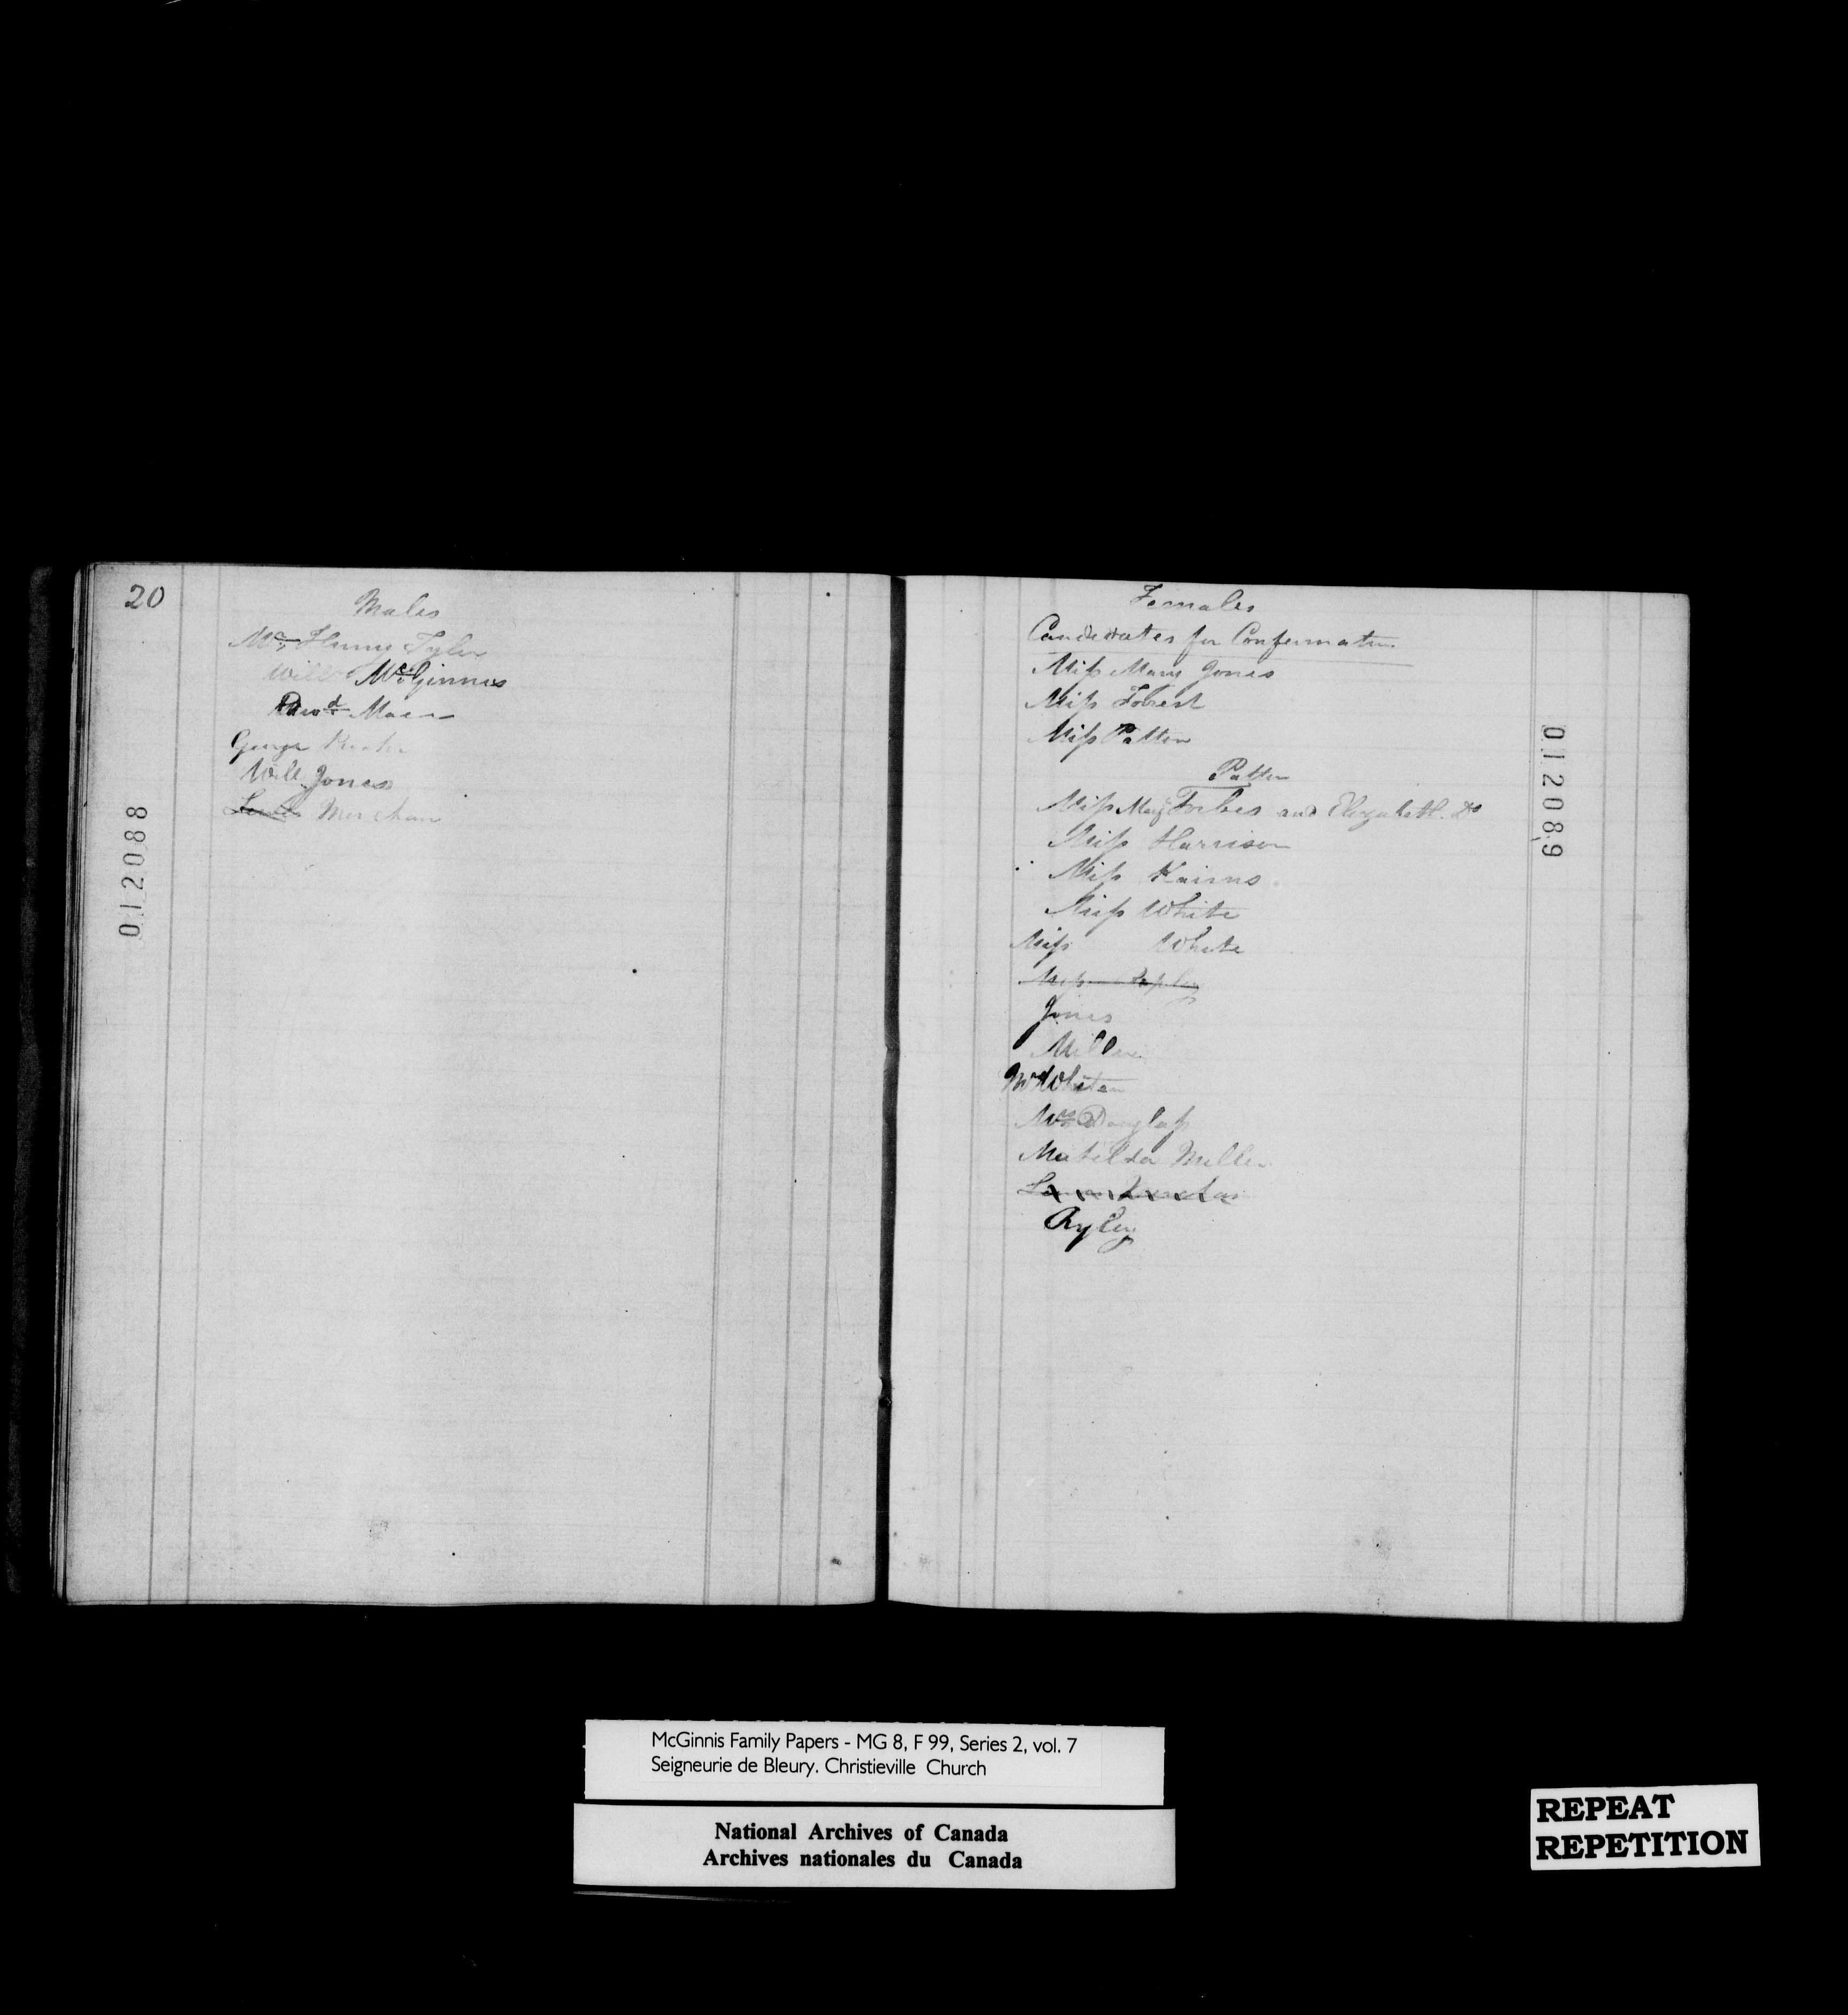 20
Males
Mr Henry Tyler
Will McGinnes
Edwd
George
Will Jones
Merchan
012088
Females
Candidates for Confirmation
Miss Mary Jones
Miss Forest
Miss Patten
Patten
Miss Mary Forbes and Elizabeth Do
Miss Harrison
Miss Kairns
Miss White
Miss White
Miss
Jones
Miller
Mrs Douglass
Matilda Miller
Ryley
012089
McGinnis Family Papers - MG 8, F 99, Series 2, vol. 7
Seigneurie de Bleury. Christieville Church
National Archives of Canada
Archives nationales du Canada
REPEAT
REPETITION